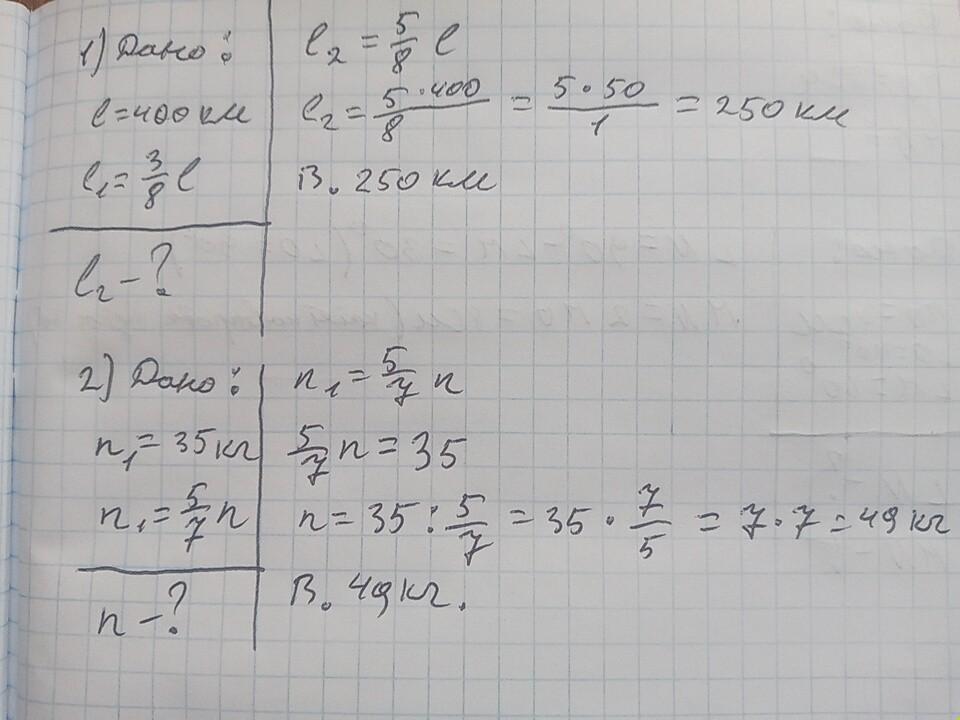 1) Дано:
l = 400 км
l₁ = 3/8 l
l₂ - ?
l₂ = 5/8 l
l₂ = 5·400/8 = 5·50/1 = 250 км
В. 250 км
2) Дано:
n₁ = 35 кг
n₁ = 5/7 n
n - ?
n₁ = 5/7 n
5/7 n = 35
n = 35 : 5/7 = 35 · 7/5 = 7·7 = 49 кг
В. 49 кг.